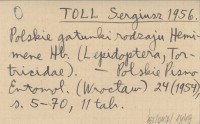 O TOLL Sergiusz 1956.
Polskie gatunki rodzaju Hemi-
mene Hb. (Lepidoptera, Tor-
tricidae). — Polskie Pismo
Entomol. (Wrocław) 24 (1954)
s. 5-70, 11 tab.